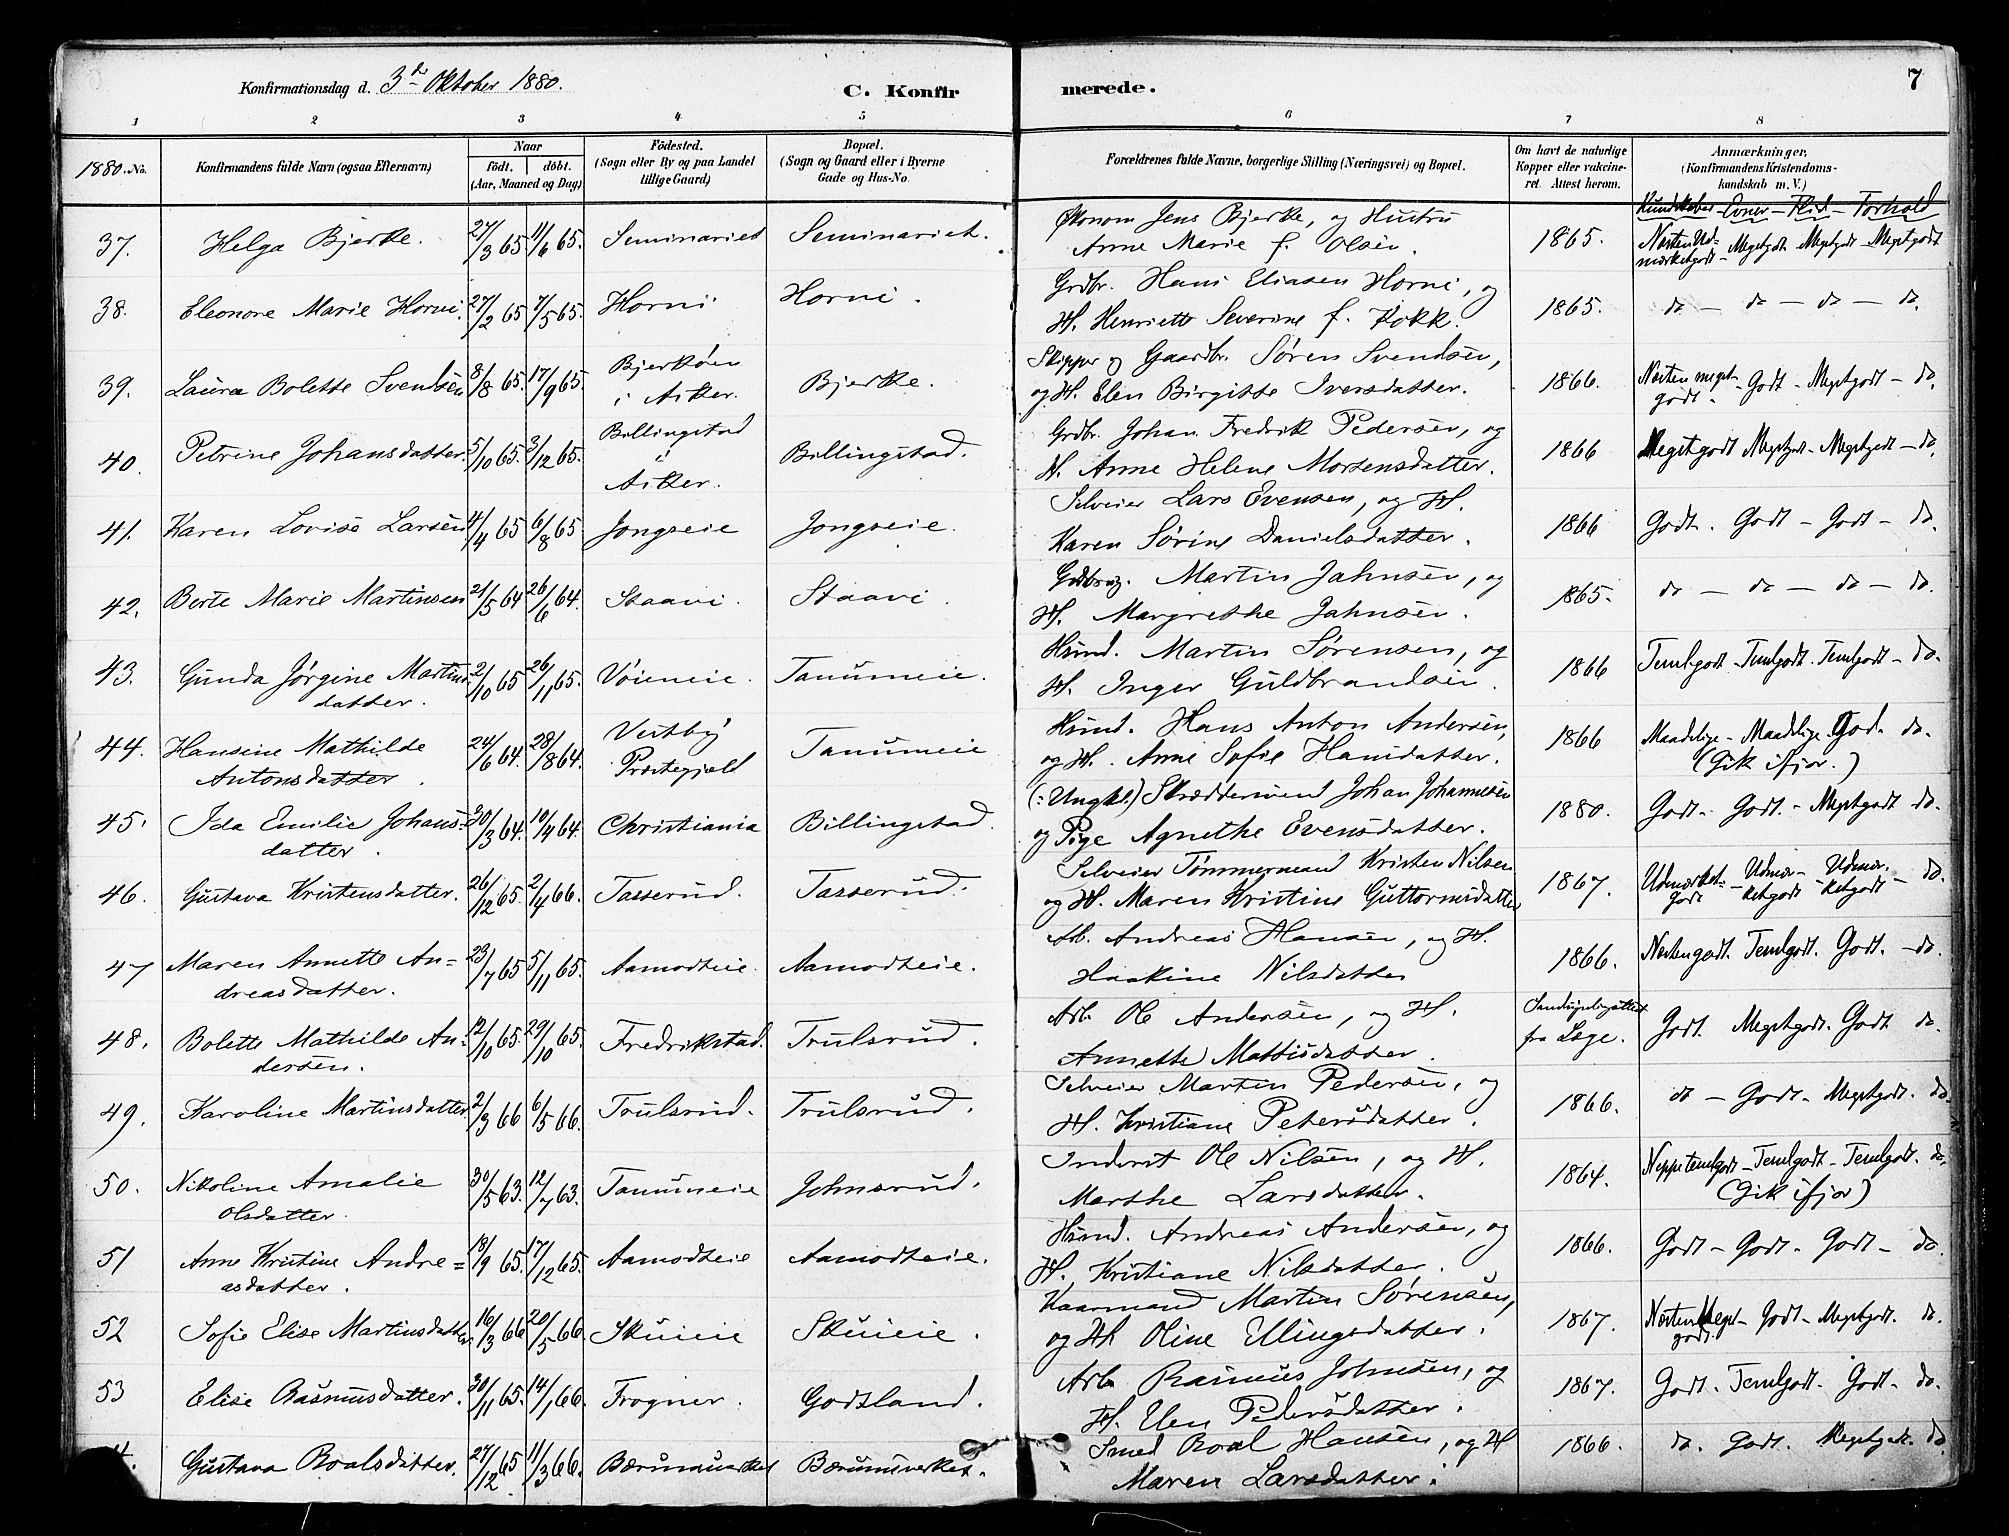 Konfirmationsdag d. 3d Oktober 1880.
C. Konfirmerede.
7
1 2 3 4 5 6 7 8
1880. No.
Konfirmandens fulde Navn (ogsaa Efternavn)
Naar
født. døbt.
(Aar, Maaned og Dag)
Fødested.
(Sogn eller By og paa Landet
tillige Gaard)
Bopæl.
(Sogn og Gaard eller i Byerne
Gade og Hus-No.
Forældrenes fulde Navne, borgerlige Stilling (Næringsvei) og Bopæl.
Om havt de naturlige
Kopper eller vakcine-
ret. Attest herom.
Anmærkninger.
(Konfirmandens Kristendoms-
kundskab m. V.)
Kundskaber - Evner - Flid - Forhold
37. Helga Bjerke. 27/3 65. 11/6 65. Seminariet Seminariet. Økonom Jens Bjerke, og Hustru
Anne Marie f. Olsen. 1865. Næsten Ud-
mærketgodt - Megetgodt. Megetgodt - Megetgodt
38. Eleonore Marie Horni. 27/2 65 7/5 65. Horni Horni. Grdbr. Hans Eliasen Horni, og
H. Henriette Severine f. Kokk. 1865. do - do - do - do.
39. Laura Bolette Svendsen 8/8 65. 17/9 65 Bjerkøen
i Asker. Bjerke. Skipper og Gaardbr. Søren Svendsen,
og H. Elen Birgitte Iversdatter. 1866. Næsten meget
godt. - Godt - Megetgodt - do.
40. Petrine Johansdatter. 5/10 65. 3/12 65. Billingstad
i
Asker. Billingstad. Grdbr. Johan Fredrik Pedersen, og
H. Anne Helene Mortensdatter. 1866 Megetgodt Megetgodt - Megetgodt - do.
41. Karen Lovise Larsen 4/4 65 6/8 65 Jongseie Jongseie. Selveier Lars Evensen, og H.
Karen Sørine Danielsdatter. 1866 Godt. Godt - Godt - do.
42. Berte Marie Martinsen 21/5 64 26/6 64. Staavi. Staavi. Gdbrug. Martin Jahnsen, og
H. Margrethe Jahnsen. 1865. do - do - do - do.
43. Gunda Jørgine Martins
datter. 2/10 65 26/11 65. Vøieneie. Tanumeie. Hsmd. Martin Sørensen, og
H. Inger Guldbrandsen. 1866 Temlgodt - Temlgodt. Temlgodt - do.
44. Hansine Mathilde
Antonsdatter. 24/6 64. 28/8 64. Vestby
Præstegjeld Tanumeie Hsmd. Hans Anton Andersen,
og H. Anne Sofie Hansdatter. 1866 Maadelige - Maadelige. God. do.
(Gik ifjor.)
45. Ida Emilie Johans-
datter. 30/3 64. 10/4 64. Christiania Billingstad. (: Ungkl.) Skræddersvend Johan Johannesen
og Pige Agnethe Evensdatter. 1880. Godt - Godt. - Megetgodt do.
46. Gustava Kristensdatter. 26/12 65. 2/4 66. Tasserud. Tasserud. Selveier Tømmermand Kristen Nilsen
og H. Maren Kristine Guttormsdatter 1867. Udmærket-
godt - Udmær-
ketgodt - Udmær-
ketgodt - do.
47 Maren Annette An=
dreasdatter. 23/7 65 5/11 65. Aamodteie. Aamodteie. Arb. Andreas Hansen, og H.
Haakine Nilsdatter 1866. Næstengodt. Temlgodt. Godt. - do
48. Bolette Mathilde An-
dersen. 12/10 65. 29/10 65. Fredrikstad. Trulsrud. Arb. Ole Andersen, og H.
Annette Mattisdatter.
fra Læge. Godt. Megetgodt. Godt. do.
49. Karoline Martinsdatter 2/3 66 6/5 66. Trulsrud. Trulsrud. Selveier Martin Pedersen, og
H. Kristiane Petersdatter. 1866. do - Godt - Megetgodt. do.
50. Nikoline Amalie
Olsdatter. 30/5 63. 12/7 63. Tanumeie Johnsrud. Inderst Ole Nilsen, og H.
Marthe Larsdatter. 1864. Neppe temlgodt - Temlgodt - Temlgodt. do.
(Gik ifjor)
51 Anne Kristine Andre=
asdatter. 18/9 65. 17/12 65. Aamodteie Aamodteie. Hsmd. Andreas Andersen, og
H. Kristiane Nilsdatter. 1866. Godt - Godt. Godt - do.
52 Sofie Elise Martinsdatter 16/3 66 20/5 66 Skuieie Skuieie. Kaarmand Martin Sørensen,
og H. Oline Ellingsdatter. 1867. Næsten Meget
godt. - Godt - Megetgodt. do.
53 Elise Rasmusdatter. 30/11 65. 14/1 66. Frogner. Godtland. Arb. Rasmus Johnsen, og
H. Elen Pedersdatter. 1867. Godt - Temlgodt. Godt. - do.
Gustava Roalsdatter. 27/12 65 11/3 66. Bærumsverket Bærumsverket. Smed Roal Hansen, og H
Maren Larsdatter. 1866. do. Godt. Megetgodt. do.